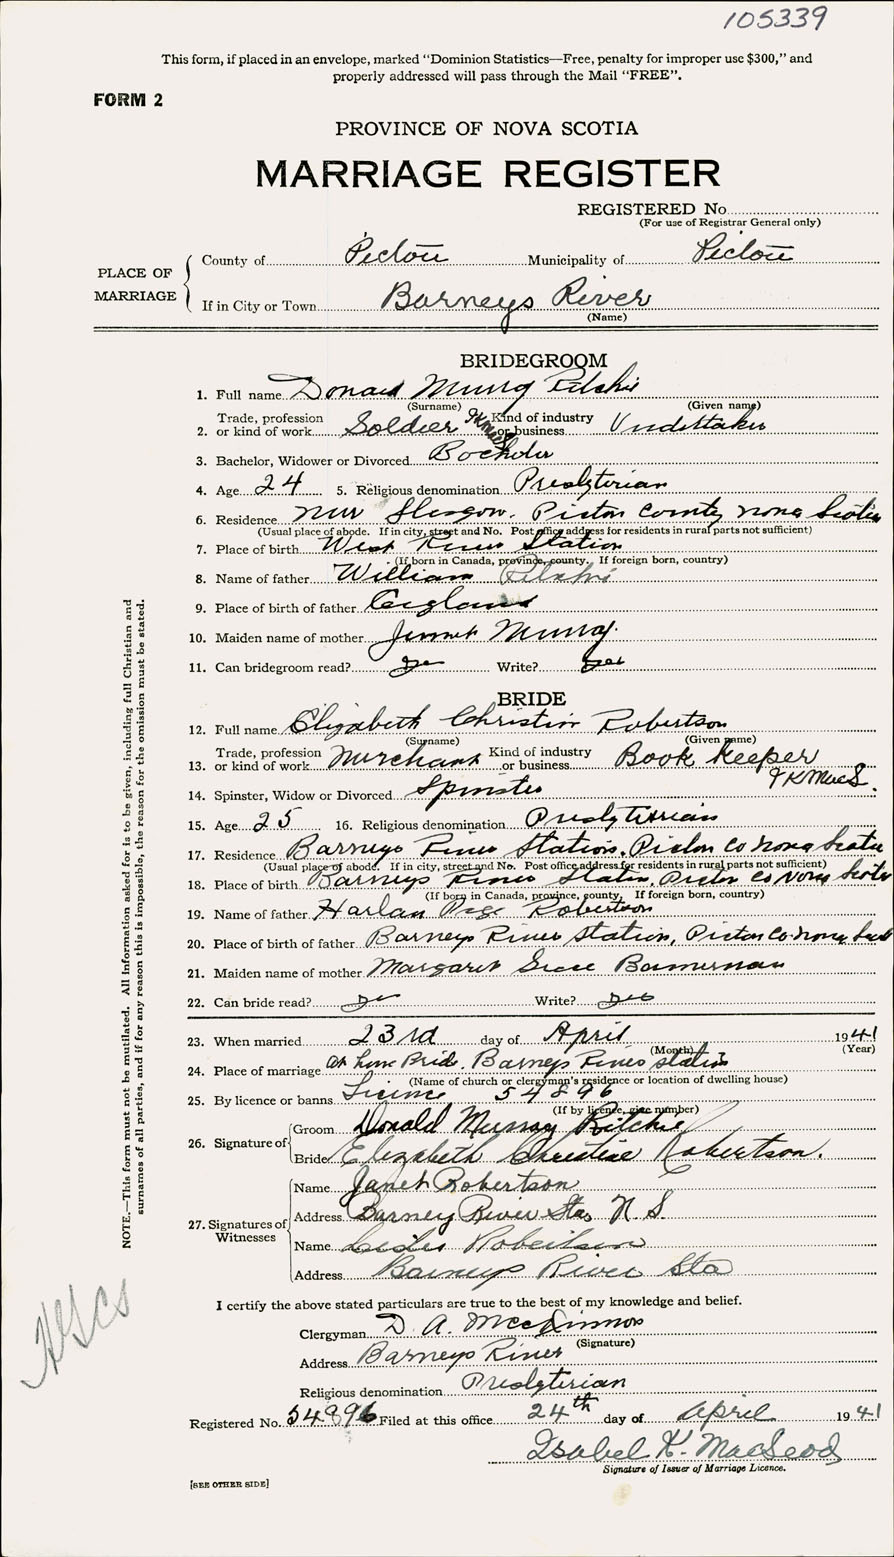 105339
This form, if placed in an envelope, marked "Dominion Statistics—Free, penalty for improper use $300," and
properly addressed will pass through the Mail "FREE".
FORM 2
PROVINCE OF NOVA SCOTIA
MARRIAGE REGISTER
REGISTERED No.
(For use of Registrar General only)
PLACE OF MARRIAGE
County of Pictou Municipality of Pictou
If in City or Town Barneys River
(Name)
BRIDEGROOM
1. Full name Donald Murray Ritchie
(Surname) (Given name)
2. Trade, profession or kind of work Soldier Kind of industry or business Undertaker
3. Bachelor, Widower or Divorced Bachelor
4. Age 24 5. Religious denomination Presbyterian
6. Residence New Glasgow. Pictou County Nova Scotia
(Usual place of abode. If in city, street and No. Post office address for residents in rural parts not sufficient)
7. Place of birth West River Station
(If born in Canada, province, county. If foreign born, country)
8. Name of father William Ritchie
9. Place of birth of father England
10. Maiden name of mother Murray
11. Can bridegroom read? Yes Write? Yes
BRIDE
12. Full name Elizabeth Christin Robertson
(Surname) (Given name)
13. Trade, profession or kind of work Merchant Kind of industry or business Book Keeper
IKMacS.
14. Spinster, Widow or Divorced Spinster
15. Age 25 16. Religious denomination Presbyterian
17. Residence Barneys River Station. Pictou Co Nova Scotia
(Usual place of abode. If in city, street and No. Post office address for residents in rural parts not sufficient)
18. Place of birth Barneys River Station, Pictou Co Nova Scotia
(If born in Canada, province, county, If foreign born, country)
19. Name of father Harlan Page Robertson
20. Place of birth of father Barneys River Station, Pictou Co. Nova Scot
21. Maiden name of mother Margaret Grace Bannerman
22. Can bride read? Yes Write? Yes
23. When married 23rd day of April 1941
(Month) (Year)
24. Place of marriage At home Bride. Barneys River Station
(Name of church or clergyman's residence or location of dwelling house)
25. By licence or banns License 54896
(If by licence, give number)
26. Signature of
Groom Donald Murray Ritchie
Bride Elizabeth Christine Robertson.
27. Signatures of Witnesses
Name Janet Robertson
Address Barney River Sta N S.
Name Robertson
Address Barneys River Sta
I certify the above stated particulars are true to the best of my knowledge and belief.
Clergyman D. A. McKinnon
(Signature)
Address Barneys River
Religious denomination Presbyterian
Registered No. 54896 Filed at this office 24th day of April 1941
Isabel K. MacLeod
Signature of Issuer of Marriage Licence.
[SEE OTHER SIDE]
NOTE.—This form must not be mutilated. All information asked for is to be given, including full Christian and
surnames of all parties, and if for any reason this is impossible, the reason for the omission must be stated.